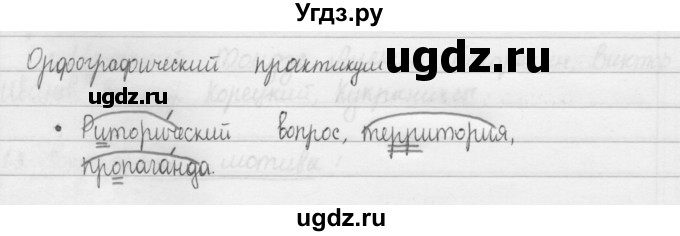 Угдз.ру
Орфографический практикум
угдз.ru
• Риторический вопрос, территория,
пропаганда.
ugdz.ru
ugdz.ru